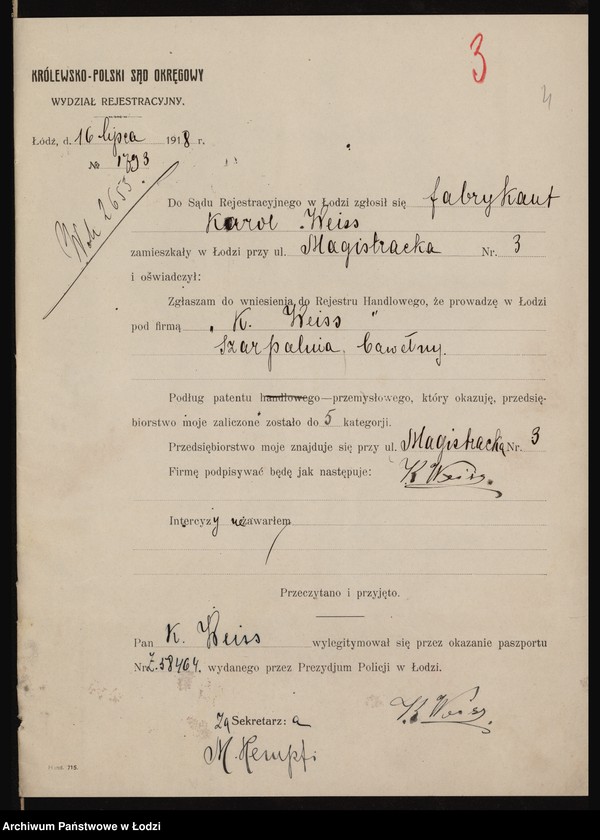 3
4
KRÓLEWSKO-POLSKI SĄD OKRĘGOWY
WYDZIAŁ REJESTRACYJNY.
Łódź, d. 16 lipca 1918 r.
№ 1793
2653.
Do Sądu Rejestracyjnego w Łodzi zgłosił się fabrykant
Karol Weiss
zamieszkały w Łodzi przy ul. Magistracka Nr. 3
i oświadczył:
Zgłaszam do wniesienia do Rejestru Handlowego, że prowadzę w Łodzi
pod firmą „K. Weiss"
Szarpalnia bawełny.
Podług patentu handlowego—przemysłowego, który okazuję, przedsię-
biorstwo moje zaliczone zostało do 5 kategorji.
Przedsiębiorstwo moje znajduje się przy ul. Magistracką Nr. 3
Firmę podpisywać będę jak następuje: K Weiss.
Intercyzy niezawarłem
Przeczytano i przyjęto.
Pan K. Weiss wylegitymował się przez okazanie paszportu
Nr. Ł. 58464. wydanego przez Prezydjum Policji w Łodzi.
K Weiss.
Za Sekretarza
M. Hempfi
718.
Archiwum Państwowe w Łodzi